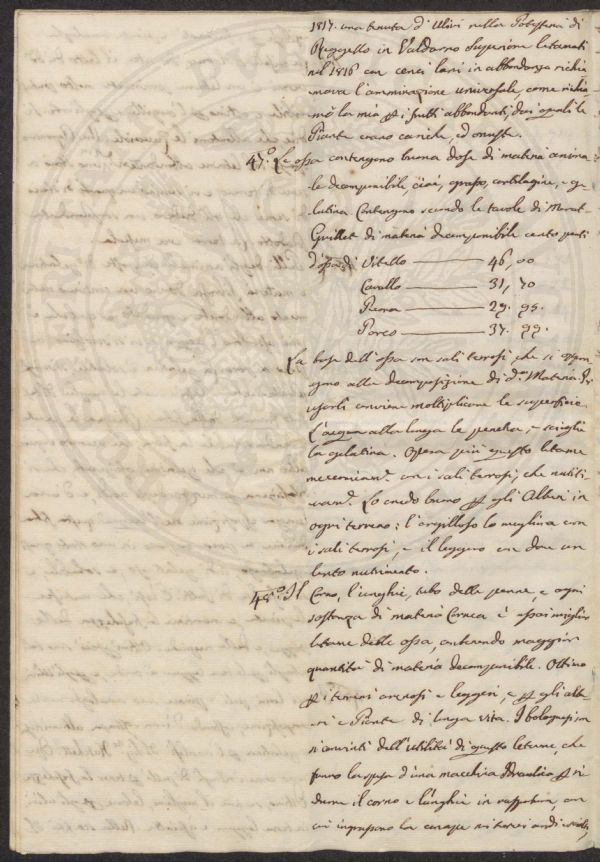 1817. una tenuta d'Ulivi nella Potesteria di
Reggello in Valdarno Superiore letamati
nel 1816 con cenci lani in abbondanza richia
mava l'ammirazione universale, come richia
mò la mia p i frutti abbondanti, dei quali le
Piante erano cariche, ed onuste.
47.° Le ossa contengono buona dose di materia anima
le decomponibile, cioè, grasso, cartilagine, e ge
latina. Contengono secondo le tavole di Merat-
Guillet di materia decomponibile cento parti
d'ossa di Vitello — 46, 00
Cavallo — 31, 70
29. 95.
Porco — 37. 99.
La base dell'ossa son sali terrosi, che si oppon
gono alla decomposizione di d.ª Materia. Per
usarli conviene moltiplicare le superficie.
L'acqua alla lunga le penetra, e scioglie
la gelatina. Opera più questo letame
meccanicam.e con i sali terrosi, che nutriti
vam.e Lo credo buono p gli Alberi in
ogni terreno: l'argilloso lo migliora con
i sali terrosi, e il leggero con dare un
lento nutrimento.
48.° Il Corno, l'unghie, tubo delle penne, e ogni
sostanza di materia Cornea è assai miglior
letame delle ossa, contenendo maggior
quantità di materia decomponibile. Ottimo
p i terreni arenosi e leggeri, e p gli albe
ri e Piante di lunga vita. I bolognesi son
sì convinti dell'utilità di questo letame, che
fanno la spesa d'una macchina Idraulica p ri
durre il corno e l'unghie in raspatura, con
cui ingrassano la canape nei terreni